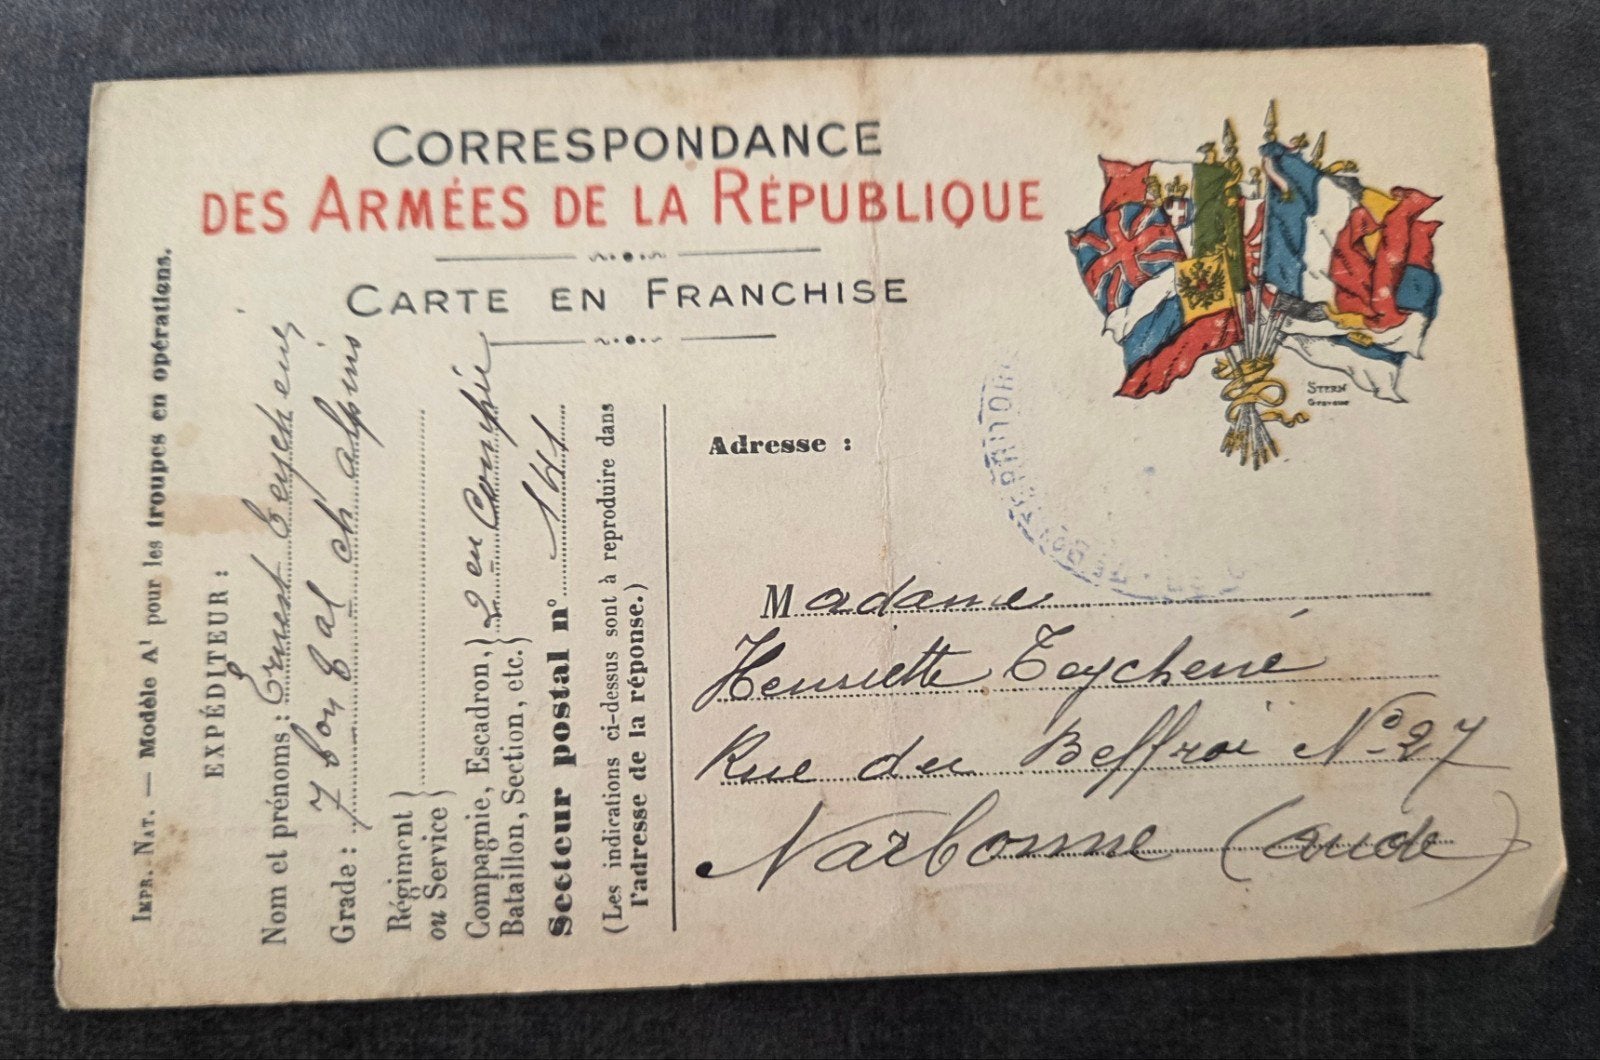 CORRESPONDANCE
DES ARMÉES DE LA RÉPUBLIQUE
CARTE EN FRANCHISE
STERN
Graveur
IMPR. NAT. — Modèle A¹ pour les troupes en opérations.
EXPÉDITEUR :
Nom et prénoms : Ernest Teychené
Grade : 7 bon Bal ch alpins
Régiment
ou Service }
Compagnie, Escadron, } 2 eu Compie
Bataillon, Section, etc. }
Secteur postal n° 141
(Les indications ci-dessus sont à reproduire dans
l'adresse de la réponse.)
Adresse :
Madame
Henriette Teychené
Rue du Beffroi No 27
Narbonne (Aude)